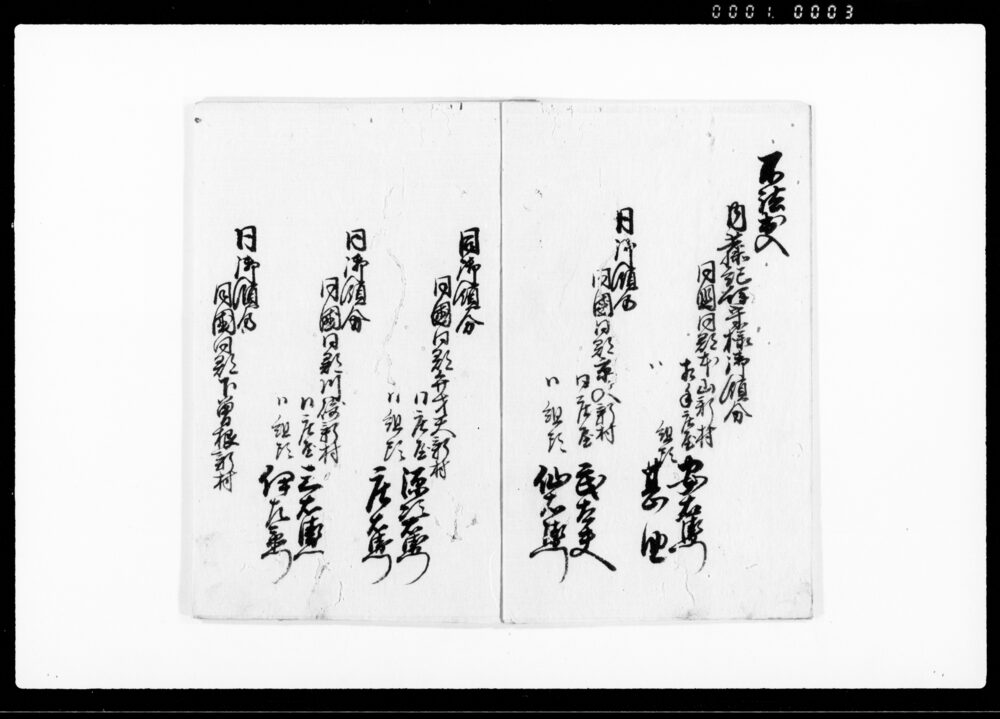 0001 0003
不法出入
内藤紀伊守様御領分
同国同郡本山新村
相手庄屋
安右衛門
〃
組頭
甚四
同御領分
同国同郡 新村
同庄屋
民右吏
〃組頭
仙右衛門
同御領分
同国同郡弁才天新村
〃庄屋
源次右衛門
〃組頭
庄右衛門
同御領分
同国同郡川崎新村
〃庄屋
三右衛門
〃組頭
伊左衛門
同御領分
同国同郡下曽根新村